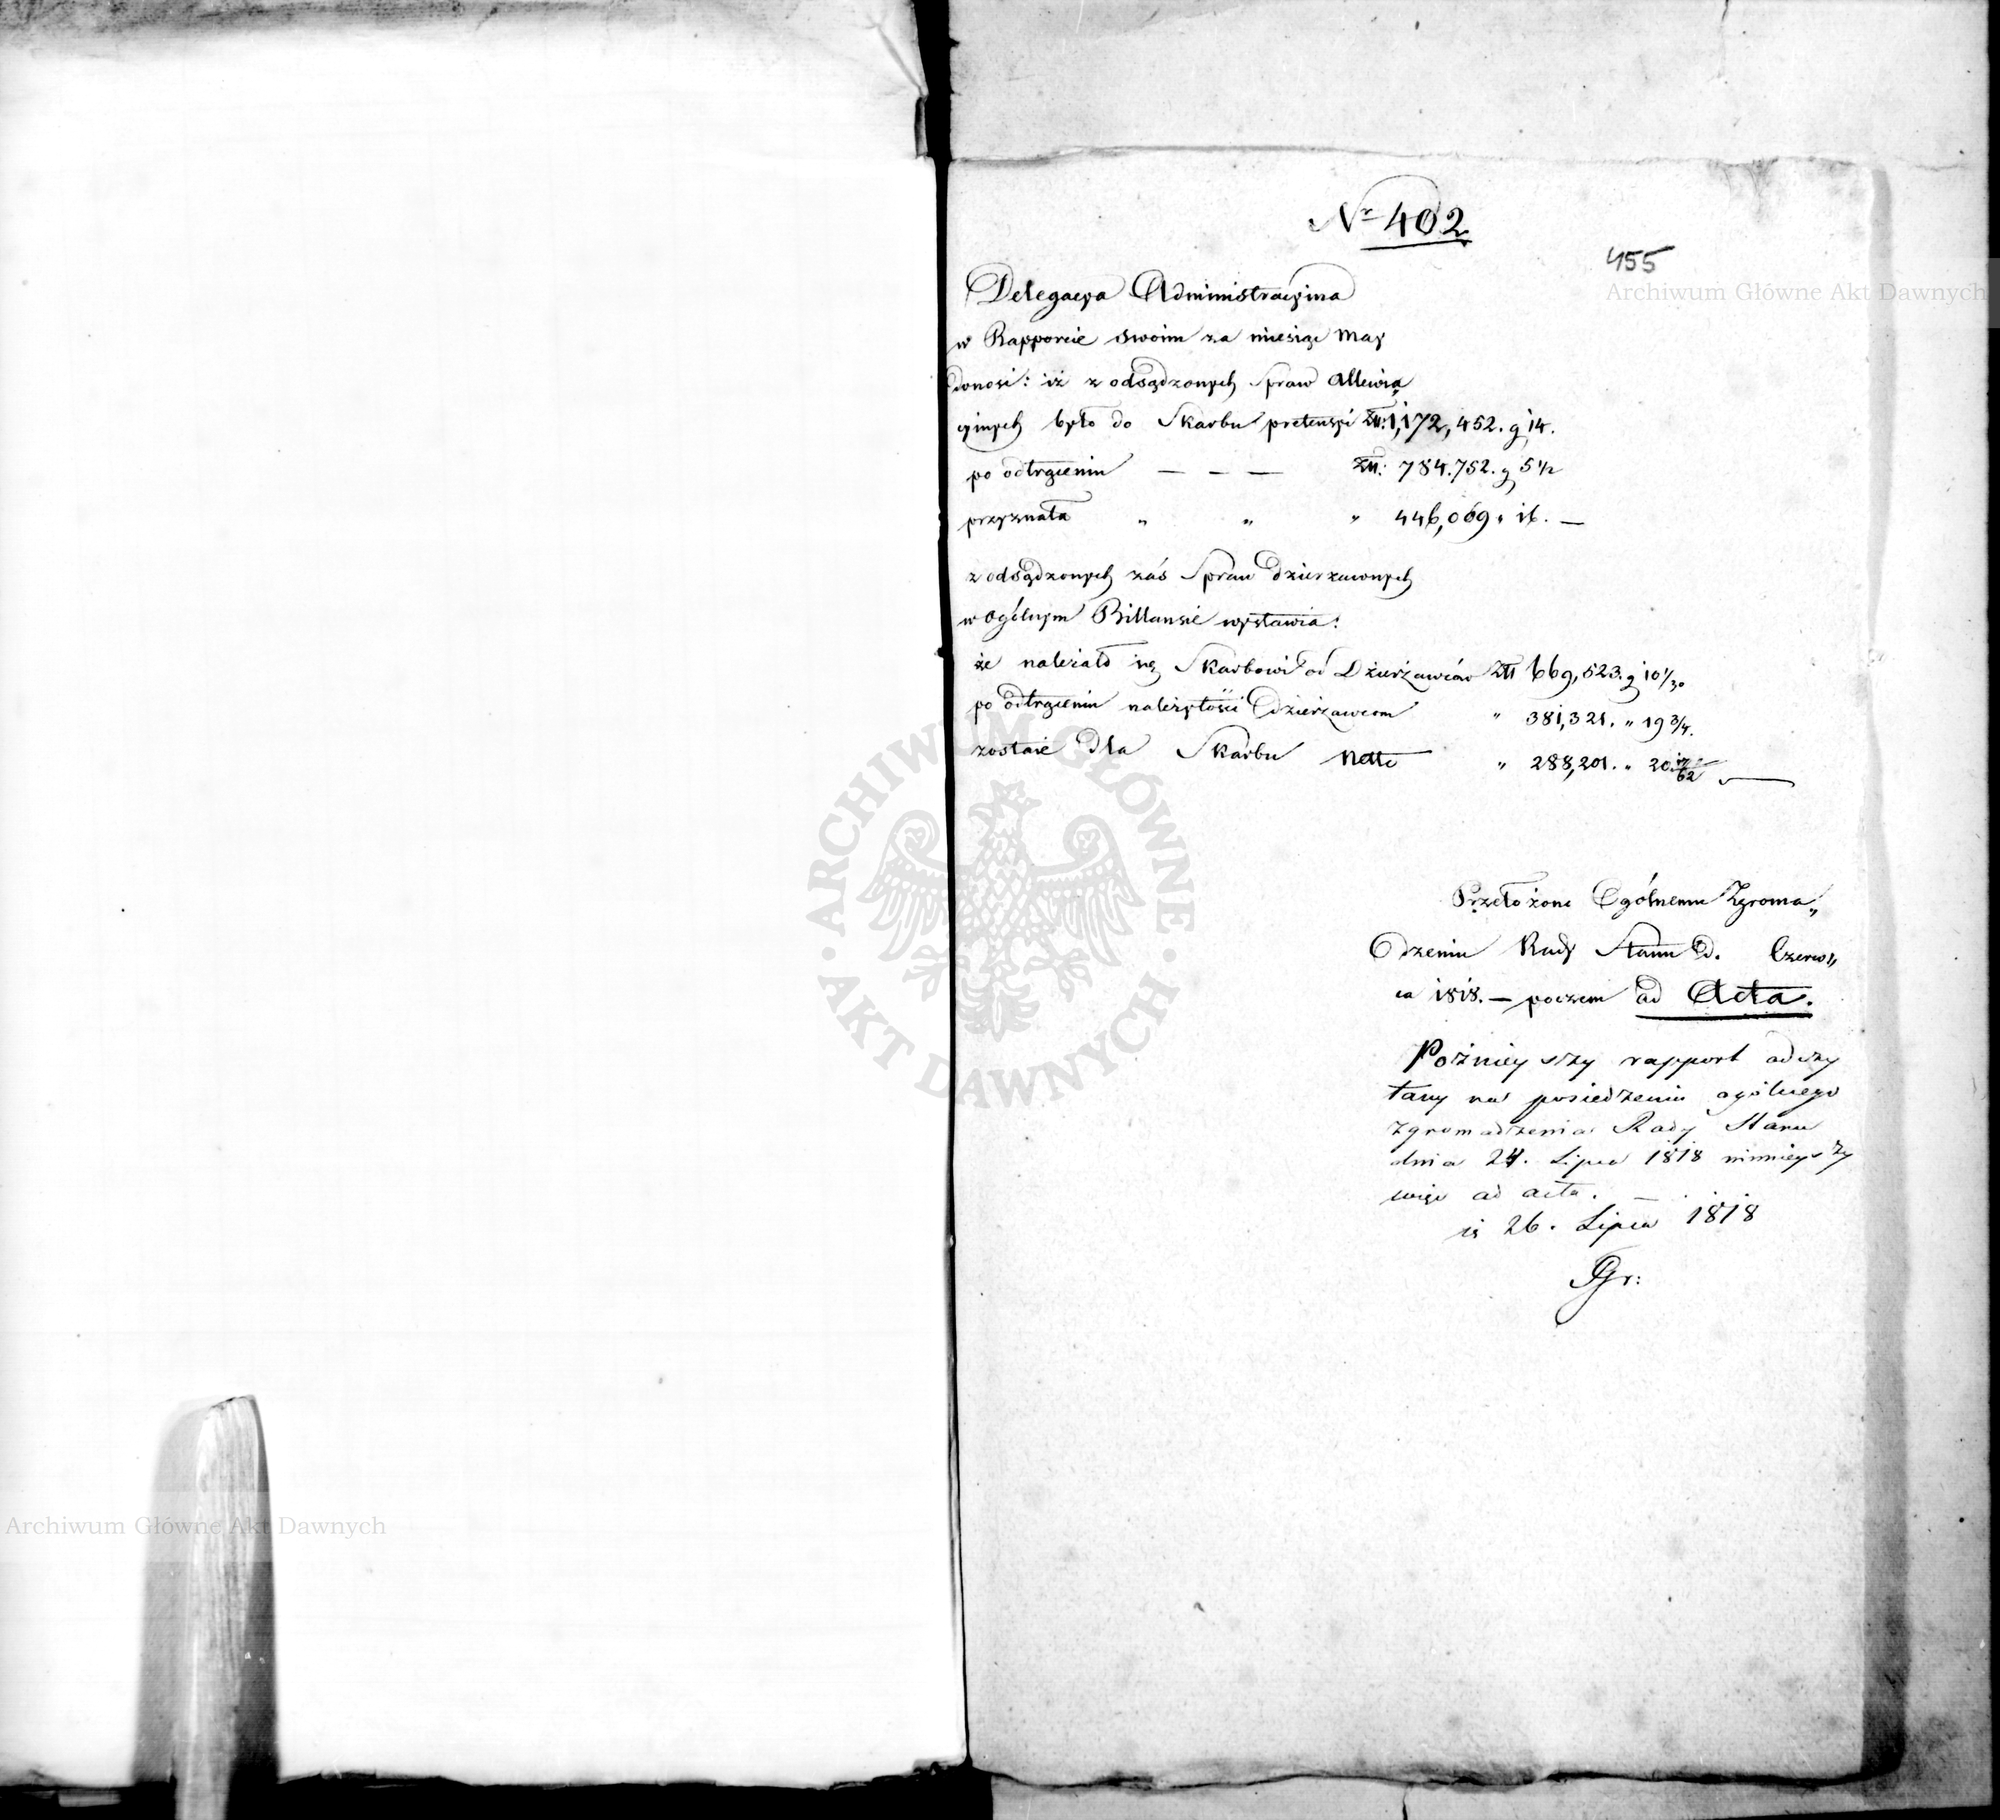 Nr 402
455
Delegacya Administracyina
w Rapporcie swoim za miesiąc May
donosi: iż z odsądzonych Spraw Allewia„
cyinych było do Skarbu pretensyi Złł: 1,172,452. g 14.
po odtrąceniu — — — Złł: 784.752. g 5 1/2
przyznała „ „ „ 446,069 „ 16. —
z odsądzonych zaś Spraw dzierzawnych
w Ogólnym Billansie wystawia:
że należało się Skarbowi od Dzierżawców Złł 669,523. g 10 1/30
po odtrąceniu należytości Dzierżawcom „ 381,321. „ 19 3/4.
zostaie dla Skarbu Netto „ 288,201. „ 20
Przełożone Ogólnemu Zgroma„
dzeniu Rady Stanu d. Czerw„
ca 1818. — poczem ad Acta.
Poźnieyszy rapport odczy
tany na posiedzeniu ogólnego
zgromadzenia Rady Stanu
dnia 24. Lipca 1818 ninieyszy
więc ad acta. —
26. Lipca 1818
Archiwum Główne Akt Dawnych
ARCHIWUM GŁÓWNE · AKT DAWNYCH ·
Archiwum Główne Akt Dawnych